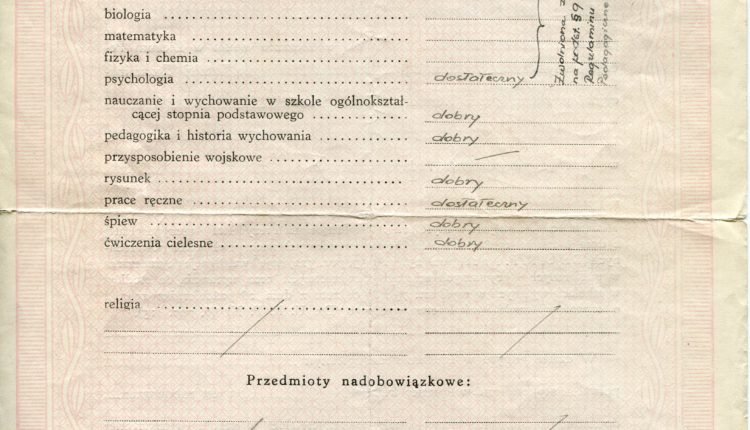 biologia
matematyka
fizyka i chemia
psychologia dostateczny
nauczanie i wychowanie w szkole ogólnokształ-
cącej stopnia podstawowego dobry
pedagogika i historia wychowania dobry
przysposobienie wojskowe —
rysunek dobry
prace ręczne dostateczny
śpiew dobry
ćwiczenia cielesne dobry
religia
Przedmioty nadobowiązkowe:
Zwolniona z
na podst. § 9
Regulaminu
Pedagogiczne